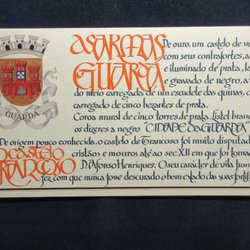 GUARDA
AS ARMAS De ouro, um castelo de ve
com seus contrafortes, a
GUARDA e iluminado de prata, la
e gravado de negro, a
do meio carregada de um escudete das quinas, c
carregado de cinco besantes de prata.
Coroa mural de cinco torres de prata. Listel branc
os dizeres a negro "CIDADE DA GUARDA"
De origem pouco conhecida, o castelo de Trancoso foi muito disputad
O CASTELO cristãos e mouros até ao séc XII em que foi tomad
TRANCOSO D. Afonso Henriques. O seu carácter de vila fron
fez com que nunca fosse descurado o bom estado d